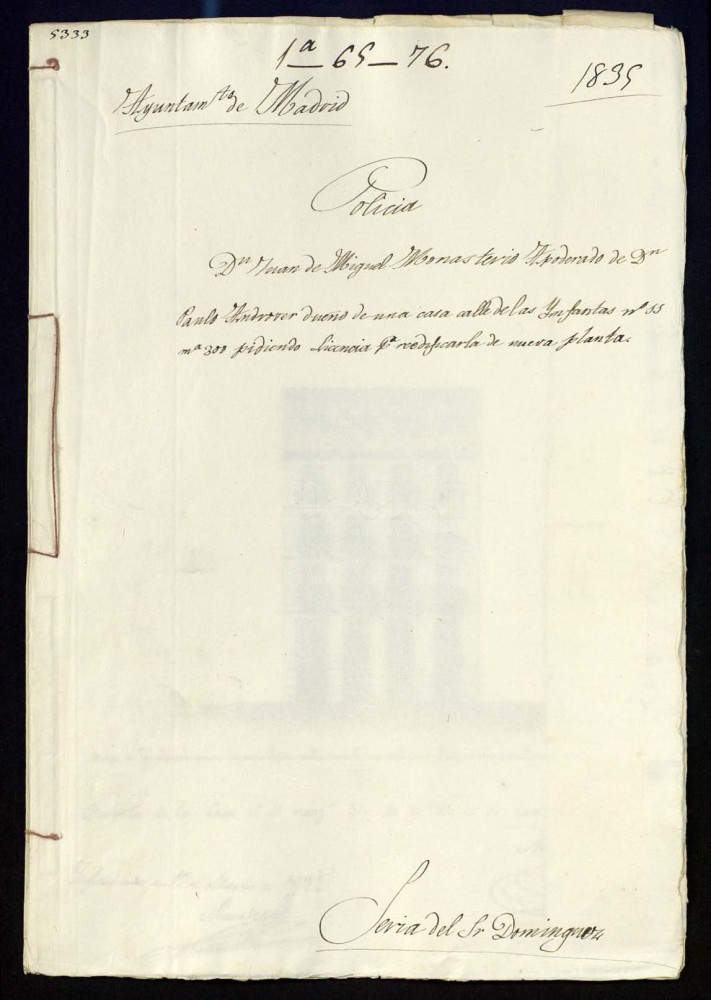 5333
1ª - 65 - 76.
1835
Ayuntamto de Madrid
Policia
Dn Juan de Miguel Monasterio Apoderado de Dn
Paulo Androver dueño de una casa calle de las Ynfantas nº
mª 300 pidiendo licencia pª reedificarla de nueva planta.
Seria del Sr Dominguez